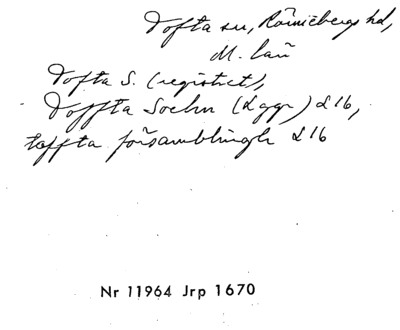 Tofta sn, Rönnebergs hd,
M. län
Tofta S. (registret),
Toffta Sochn (2 ggr) L 16,
toffta församblingh L 16
Nr 11964 Jrp 1670